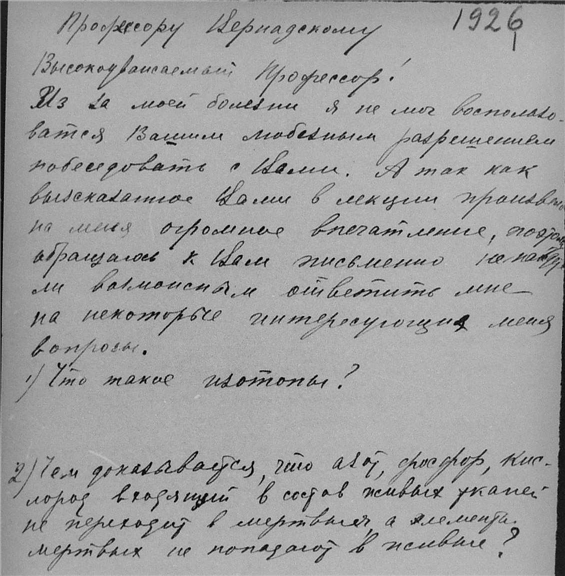 1926
Профессору Вернадскому
Высокоуважаемый Профессор!
Из за моей болезни я не мог воспользо-
ватся Вашим любезным разрешением
побеседовать с Вами. А так как
высказанное Вами в лекции произвело
на меня огромное впечатление, поэтому
обращаюсь к Вам письменно не
ли возможным ответить мне
на некоторые интересующия меня
вопросы.
1) Что такое изотопы?
2) Чем доказывается, что азот, фосфор, кис-
лород входящий в состав живых тканей
не переходит в мертвыя а элементы
мертвых не попадают в живые?